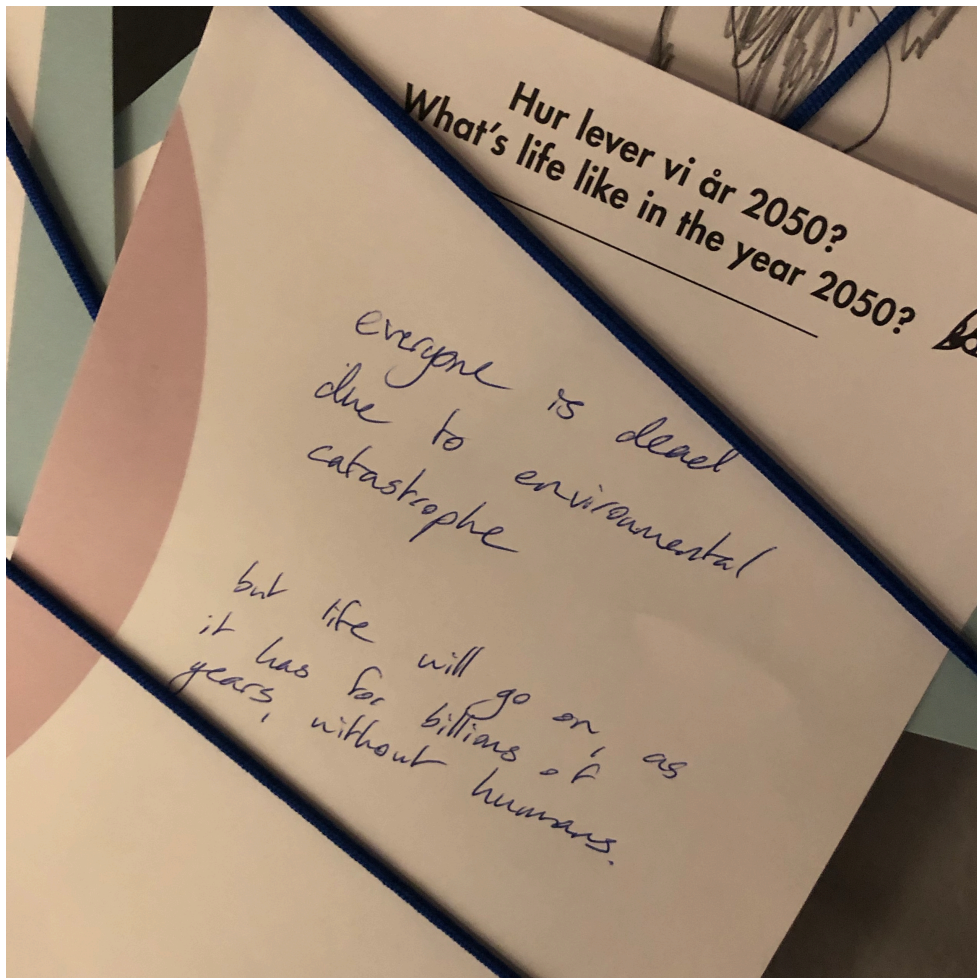 Hur lever vi år 2050?
What's life like in the year 2050?
everyone is dead
due to environmental
catastrophe
but life will go on, as
it has for billions of
years, without humans.